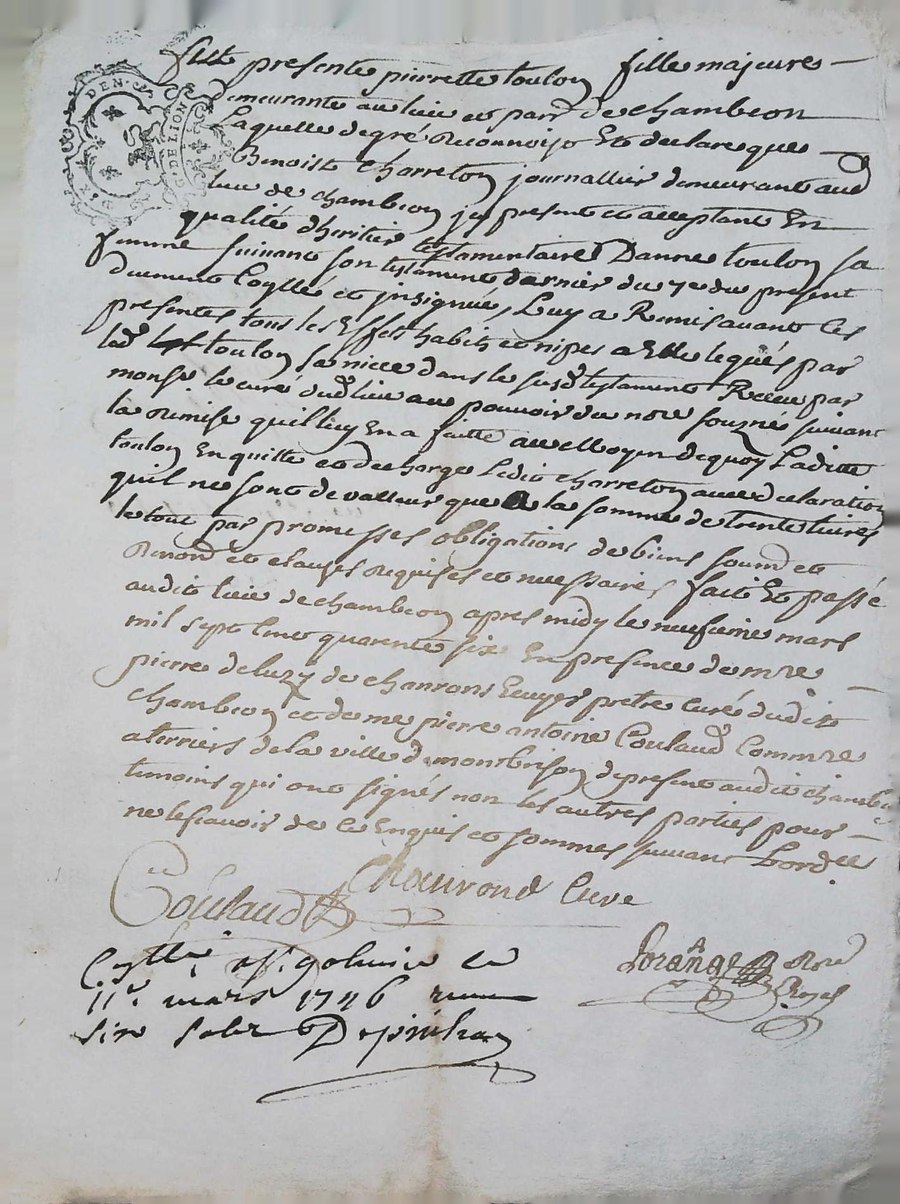 DEN.
G. DE LION
fut presente pierrette toulon fille majeure
demeurante au lieu et parr. de chambeon
Laquelle de gré Reconnoist Et declare que
Benoist Charreton journallier demeurant aud
lieu de chambeon jcy present et acceptant En
qualité d'heritier testamentaire D'anne toulon sa
femme suivant son testament dernier du 7e du present
duement Coŋllé et jnsignué, Luy a Remis avant les
presentes tous les Effets habits et nipes a Elle legués par
lad. toulon sa niece dans le susd. testament Receu par
monsr. le curé dud. lieu au pouvoir du nore souzné suivant
la Remise qu'il luy En a faitte au Moyen dequoy Laditte
toulon En quitte et decharge Ledit Charreton avec declaration
quil ne sont de valleur que de la somme de trente livres
le tout par promesses obligations de biens soumd. et
Renond. et clauses Requises et necessaires fait Et passé
audit lieu de chambeon apres midy le neufieme mars
mil sept cent quarente six En presence de mre
pierre deluzy de chanrons Ecuyer pretre curé dudit
chambeon et de me pierre antoine Coulaud Commre
a terriers de la ville de montbrison de present audit chambeon
temoins qui ont signés non les autres parties pour
ne le scavoir de ce Enquis et sommés suivant L'ord.ce
Coulaud
Chanrond Curé
Lorange Nore
Royal
11e. mars 1746
six sols